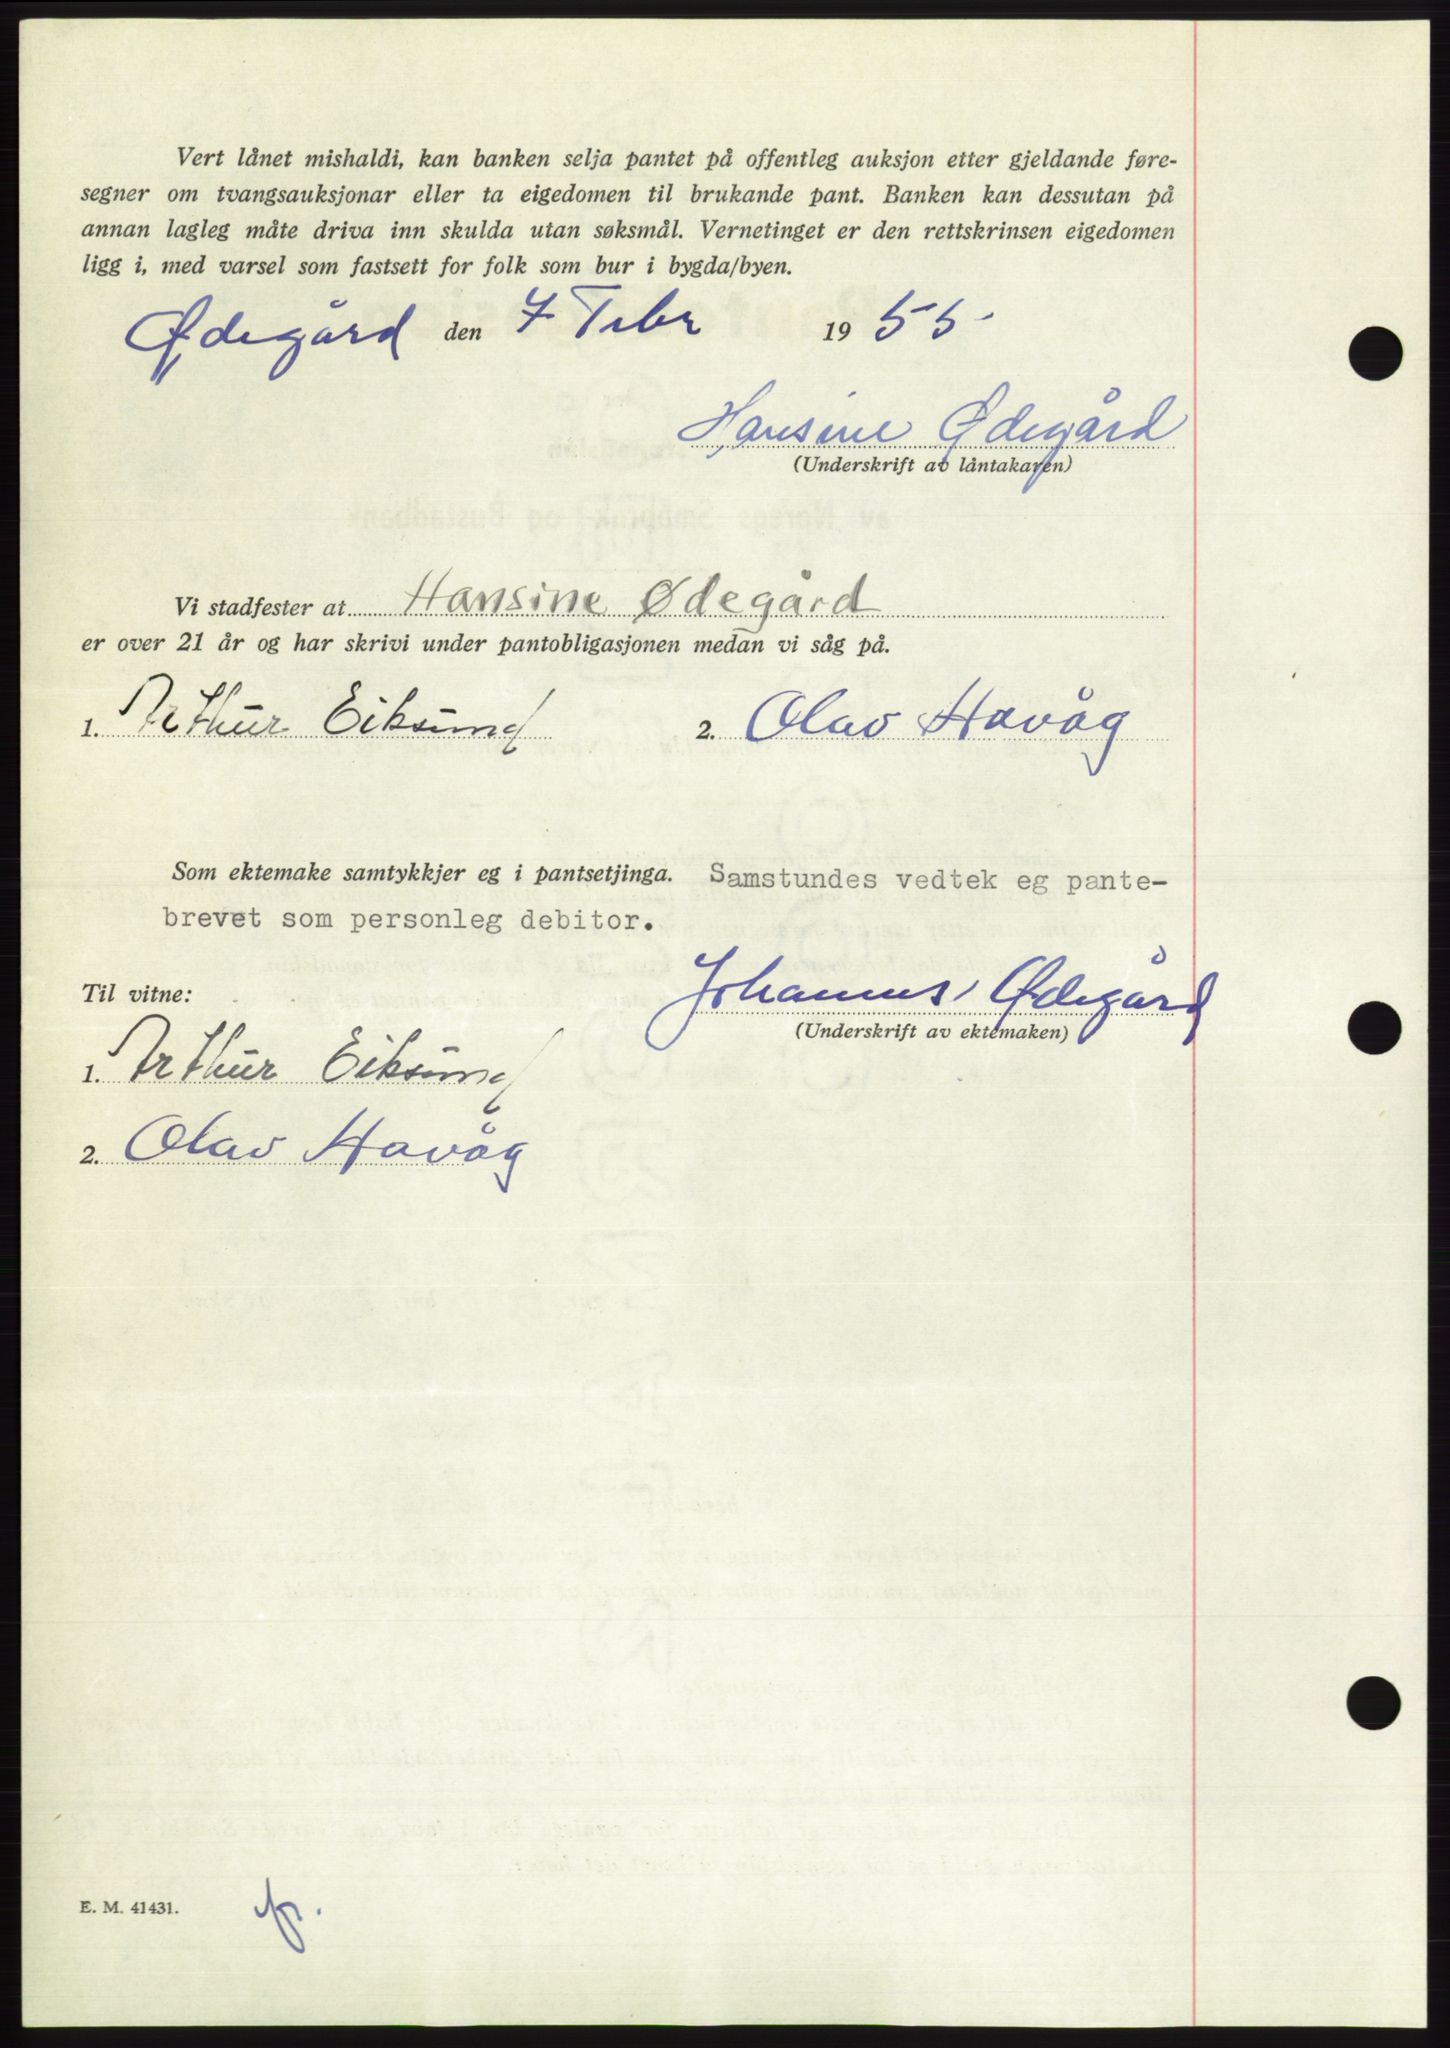 Vert lånet mishaldi, kan banken selja pantet på offentleg auksjon etter gjeldande føre-
segner om tvangsauksjonar eller ta eigedomen til brukande pant. Banken kan dessutan på
annan lagleg måte driva inn skulda utan søksmål. Vernetinget er den rettskrinsen eigedomen
ligg i, med varsel som fastsett for folk som bur i bygda/byen.
Ødegård den 7 Febr 1955
Hansine Ødegård
(Underskrift av låntakaren)
Vi stadfester at Hansine Ødegård
er over 21 år og har skrivi under pantobligasjonen medan vi såg på.
1. Arthur Eiksund 2. Olav Havåg
Som ektemake samtykkjer eg i pantsetjinga. Samstundes vedtek eg pante-
brevet som personleg debitor.
Johannes Ødegård
Til vitne:
(Underskrift av ektemaken)
1. Arthur Eiksund
2. Olav Havåg
E. M. 41431.